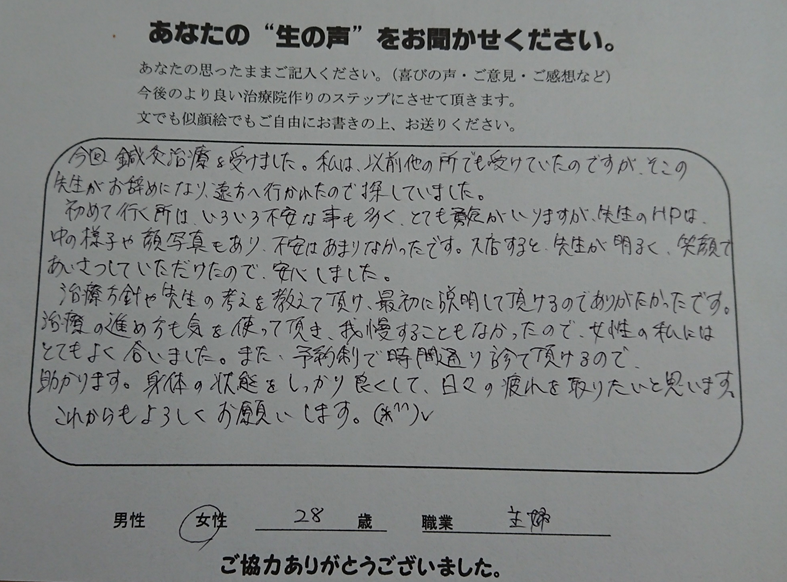 あなたの“生の声”をお聞かせください。
あなたの思ったままご記入ください。（喜びの声・ご意見・ご感想など）
今後のより良い治療院作りのステップにさせて頂きます。
文でも似顔絵でもご自由にお書きの上、お送りください。
今回鍼灸治療を受けました。私は、以前他の所でも受けていたのですが、そこの
先生がお辞めになり、遠方へ行かれたので探していました。
初めて行く所は、いろいろ不安な事も多く、とても勇気がいりますが、先生のHPは、
中の様子や顔写真もあり、不安はあまりなかったです。入店すると、先生が明るく、笑顔で
あいさつしていただけたので、安心しました。
治療方針や先生の考えを教えて頂け、最初に説明して頂けるのでありがたかったです。
治療の進め方も気を使って頂き、我慢することもなかったので、女性の私には
とてもよく合いました。また、予約制で時間通り診て頂けるので、
助かります。身体の状態をしっかり良くして、日々の疲れを取りたいと思います。
これからもよろしくお願いします。(*^^)v
男性 女性 28 歳 職業 主婦
ご協力ありがとうございました。